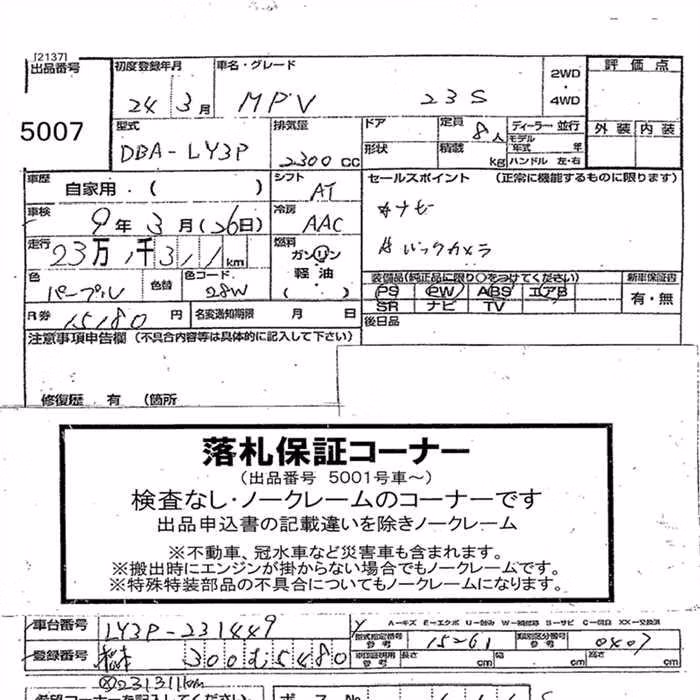 [2137]
出品番号
5007
初度登録年月
24年 3月
車名・グレード
MPV 23S
2WD
・
4WD
評価点
外装 内装
型式
DBA-LY3P
排気量
2300 CC
ドア
形状
定員 8人
積載 kg
ディーラー・並行
モデル年式 年
ハンドル 左・右
車歴
自家用・( )
シフト
AT
セールスポイント (正常に機能するものに限ります)
ナビ
バックカメラ
車検
9年 3月(26日)
冷房
AAC
走行
23万 千311km
燃料
ガソリン
軽油
( ・ )
色
パープル
色替
色コード
28W
装備品(純正品に限り○をつけてください)
PS PW ABS エアB
SR ナビ TV
新車保証書
有・無
R券
15180円
名変通知期限 月 日
後日品
注意事項申告欄 (不具合内容等は具体的に記入して下さい)
修復歴 有 (箇所
落札保証コーナー
(出品番号 5001号車~)
検査なし・ノークレームのコーナーです
出品申込書の記載違いを除きノークレーム
※不動車、冠水車など災害車も含まれます。
※搬出時にエンジンが掛からない場合でもノークレームです。
※特殊特装部品の不具合についてもノークレームになります。
車台番号
LY3P-231449
A=キズ E=エクボ U=凹み W=補修跡 S=サビ C=腐食 XX=交換済
型式指定番号
参考
15261
類別区分番号
参考
0407
登録番号
300 む 5480
車庫証明用
参考
長さ cm
幅 cm
高さ cm
231311km
希望コーナーを記入してください
ポス No